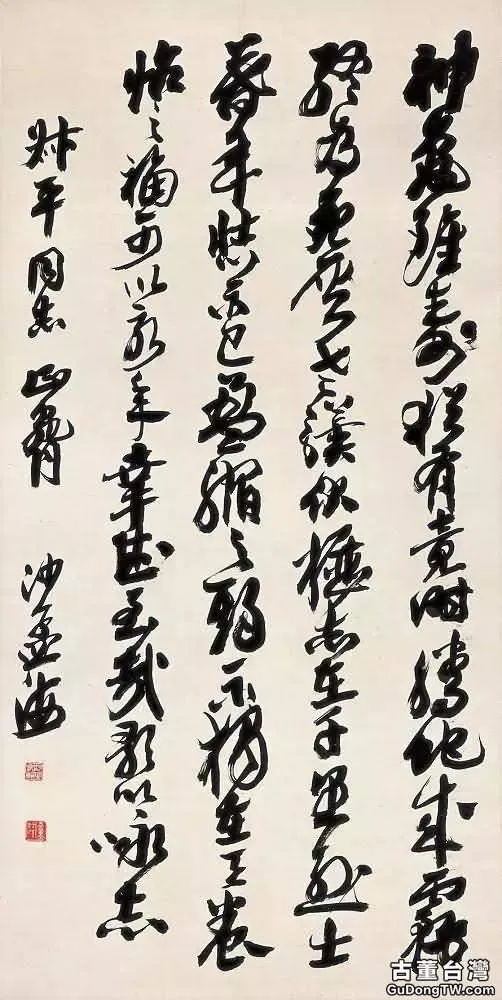 神龜雖壽猶有竟時騰蛇成霧
終為土灰老驥伏櫪志在千里烈士
暮年壯心不已盈縮之期不獨在天養
怡之福可以永年幸甚至哉歌以詠志
叔平同志正 沙孟海
古董台灣
GuDongTW.com